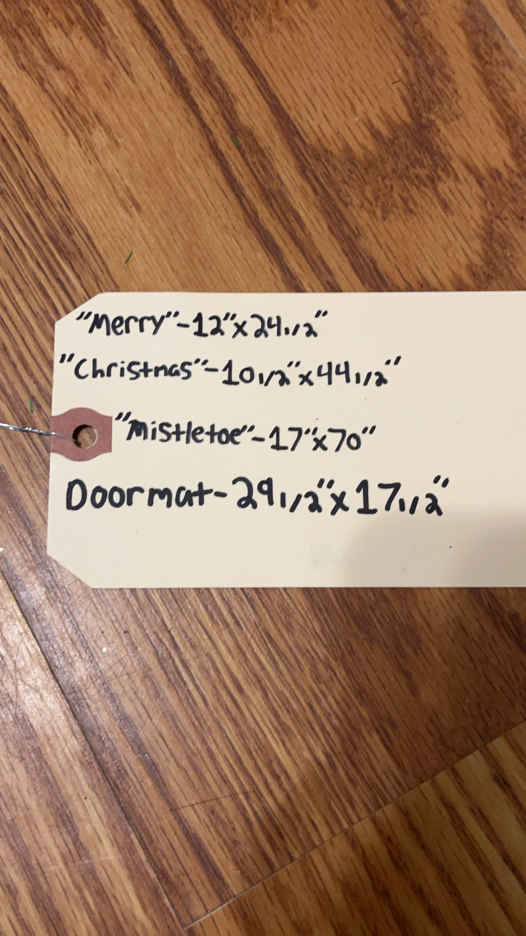 "Merry"-12"x241/2"
"Christmas"-101/2"x441/2"
"Mistletoe"-17"x70"
Doormat-291/2"x171/2"